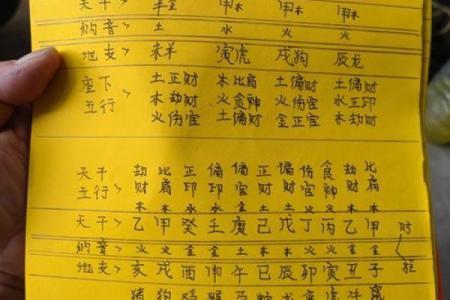 天干> 辛金 甲木 甲木
纳音> 土 水 火 火
地支> 未羊 寅虎 戌狗 辰龙
座下 土正财 木比肩 土偏财 土偏财
五行> 木劫财 火食神 火伤官 水正印
火伤官 土偏财 金正官 木劫财
天干 劫 比 正 偏 偏 正 偏 伤 食 劫 比
五行> 财 肩 印 印 官 财 财 官 神 财 肩
木 木 水 水 金 土 土 火 火 木 木
天干> 乙 甲 癸 壬 庚 己 戊 丁 丙 乙 甲 时
纳音> 火 火 金 金 土 木 木 火 火 金 金
地支> 亥 戌 酉 申 午 巳 辰 卯 寅 丑 子 柱
猪 狗 鸡 猴